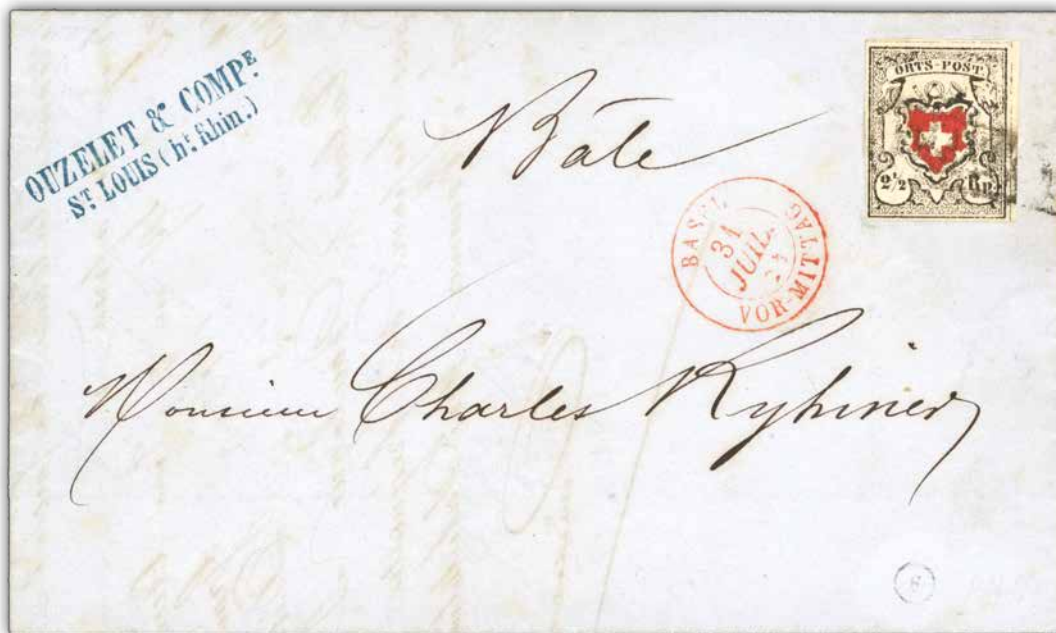 OUZELET & COMPE.
ST. LOUIS (ht. Rhin.)
Bâle
ORTS-POST
2 1/2 Rp.
BASEL
31
JUIL.
VOR-MITTAG
Monsieur Charles Ryhiner